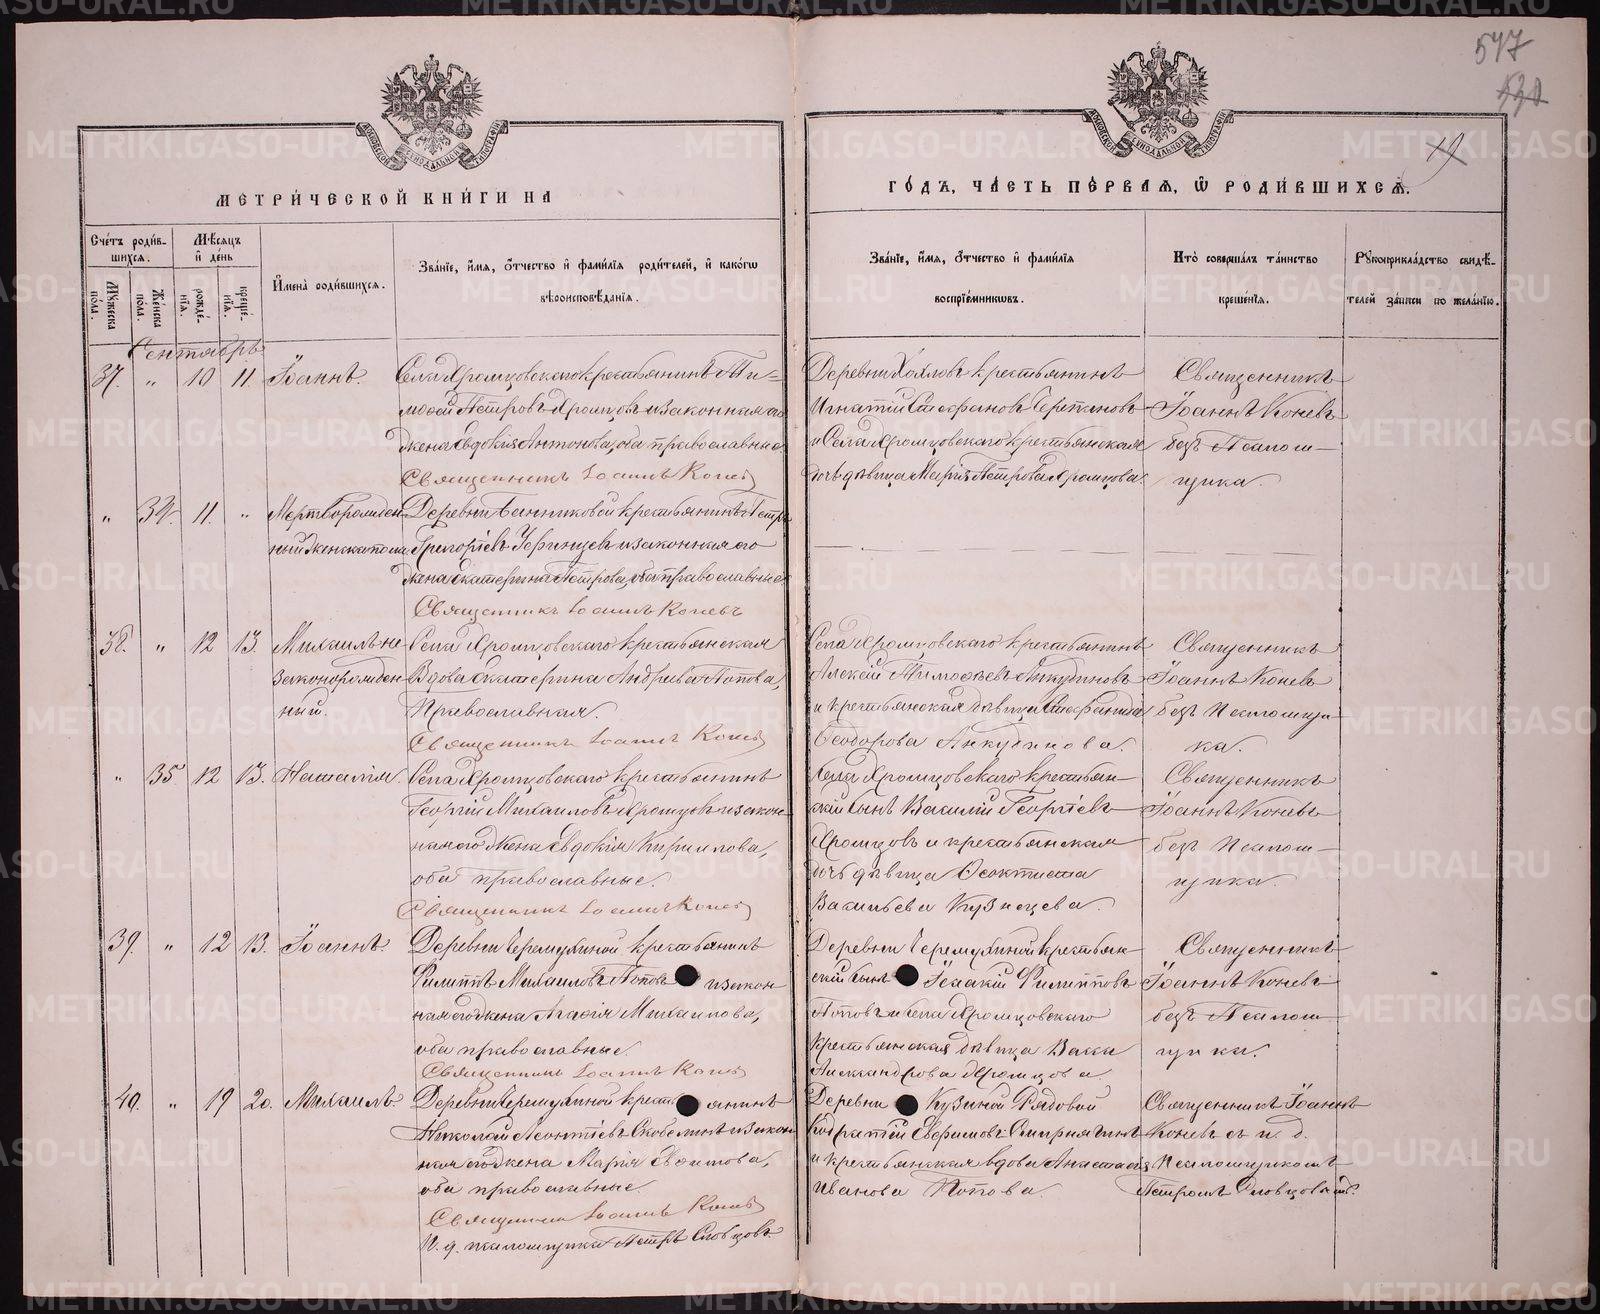 547
МЕТРИ́ЧЕСКОЙ КНИ́ГИ НА
ГО́ДЪ, ЧА́СТЬ ПЕ́РВАЯ, Ѡ҆ РОДИ́ВШИХСЯ.
Сче́тъ роди́в-
шихся.
Му́жеска по́ла.
Же́нска по́ла.
Мѣ́сяцъ и҆ де́нь
рожде́-нїя.
креще́-нїя.
И҆мена̀ роди́вшихся.
Зва́нїе, и҆́мя, ѻ҆́тчество и҆ фами́лїя роди́телей, и҆ како́гѡ
вѣроисповѣ́данїя.
Зва́нїе, и҆́мя, ѻ҆́тчество и҆ фами́лїя
воспрїе́мниковъ.
Кто̀ соверша́лъ та́инство
креще́нїя.
Рꙋкоприкла́дство свидѣ́-
телей за́писи по жела́нїю.
Сентябрь
37. „ 10 11. Іоаннъ.
Села Хромцовскаго крестьянинъ Ти-
моѳей Петровъ Хромцовъ и законная его
жена Евдокія Антонова, оба православные
Священникъ Іоаннъ Коневъ
Деревни Хохловъ крестьянинъ
Игнатій Стефановъ Черепановъ
и Села Хромцовскаго крестьянская
дочь дѣвица Марія Петрова Хромцова.
Священникъ
Іоаннъ Коневъ
безъ Псалом-
щика.
„ 34. 11. „ Мертворожден-
ный женска пола
Деревни Банниковой крестьянинъ Петръ
Григорьевъ и законная его
жена Екатерина Петрова, оба православные
Священникъ Іоаннъ Коневъ
38. „ 12 13. Михаилъ не-
законорожден-
ный.
Села Хромцовскаго крестьянская
Вдова Екатерина Андріева Попова,
Православная.
Священникъ Іоаннъ Коневъ
Села Хромцовскаго крестьянинъ
Алексій Тимоѳеевъ Анкудиновъ
и крестьянская дѣвица Стефанида
Ѳеодорова Анкудинова.
Священникъ
Іоаннъ Коневъ
безъ Псаломщи-
ка.
„ 35. 12 13. Наталія.
Села Хромцовскаго крестьянинъ
Георгій Михаиловъ Хромцовъ и закон-
ная его жена Евдокія Кирилова,
оба православные.
Священникъ Іоаннъ Коневъ
Села Хромцовскаго крестьян-
скій сынъ Василій Георгіевъ
Хромцовъ и крестьянская
дочь дѣвица Ѳеоктиста
Васильева Кузнецева.
Священникъ
Іоаннъ Коневъ
безъ Псалом-
щика.
39. „ 12 13. Іоаннъ.
Деревни Черемухиной крестьянинъ
Филиппъ Михаиловъ Поповъ и закон-
ная его жена Агафія Михаилова,
оба православные.
Священникъ Іоаннъ Коневъ
Деревни Черемухиной крестьян-
скій сынъ Исакій Филипповъ
Поповъ и села Хромцовскаго
крестьянская дѣвица Васса
Александрова Хромцова.
Священникъ
Іоаннъ Коневъ
безъ Псалом-
щика.
40. „ 19 20. Михаилъ.
Деревни Черемухиной крестьянинъ
Николай Леонтіевъ Скобелинъ и закон-
ная его жена Марія Евфимова,
оба православные.
Священникъ Іоаннъ Коневъ
И. д. псаломщика Петръ Словцовъ.
Деревни Кузиной Рядовой
Кодратій Евфимовъ
и крестьянская вдова Анастасія
Иванова Попова.
Священникъ Іоаннъ
Коневъ съ и. д.
Псаломщикомъ
Петромъ Словцовымъ.
METRIKI.GASO-URAL.RU